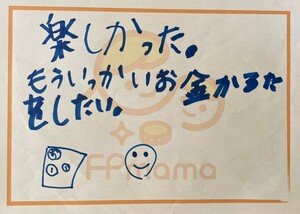 楽しかった。
もういっかいお金かるた
をしたい。
FPmama